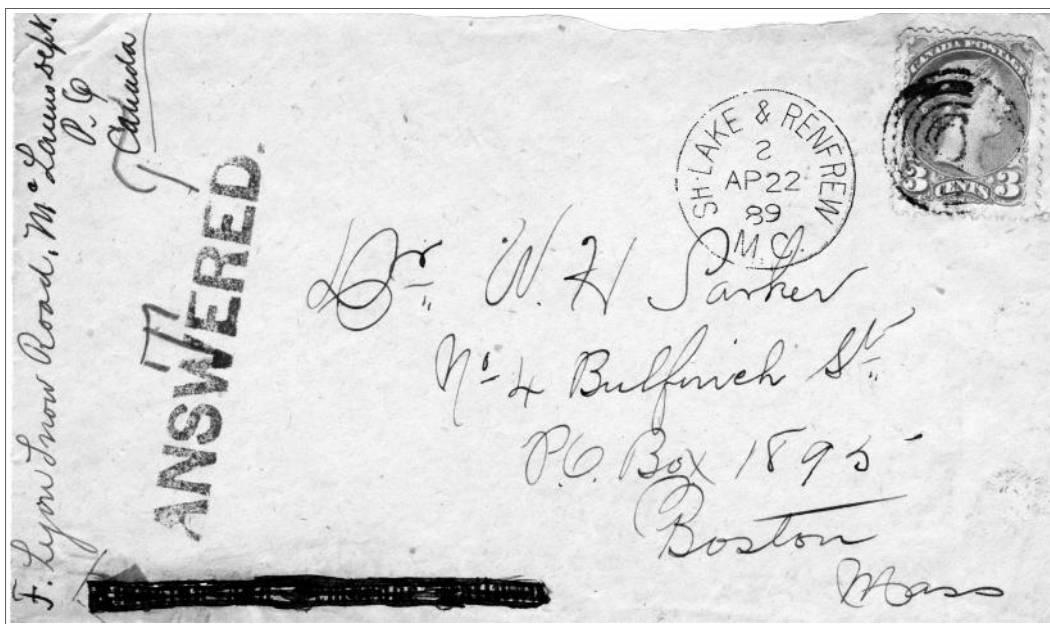 F. Lyon Snow Road, Mc Larens Dept.
P. O
Canada
ANSWERED.
CANADA POSTAGE
3 CENTS 3
SH·LAKE & RENFREW
2
AP 22
89
M.C.
Dr W. H Parker
No 4 Bulfinch St
P.O. Box 1895
Boston
Mass